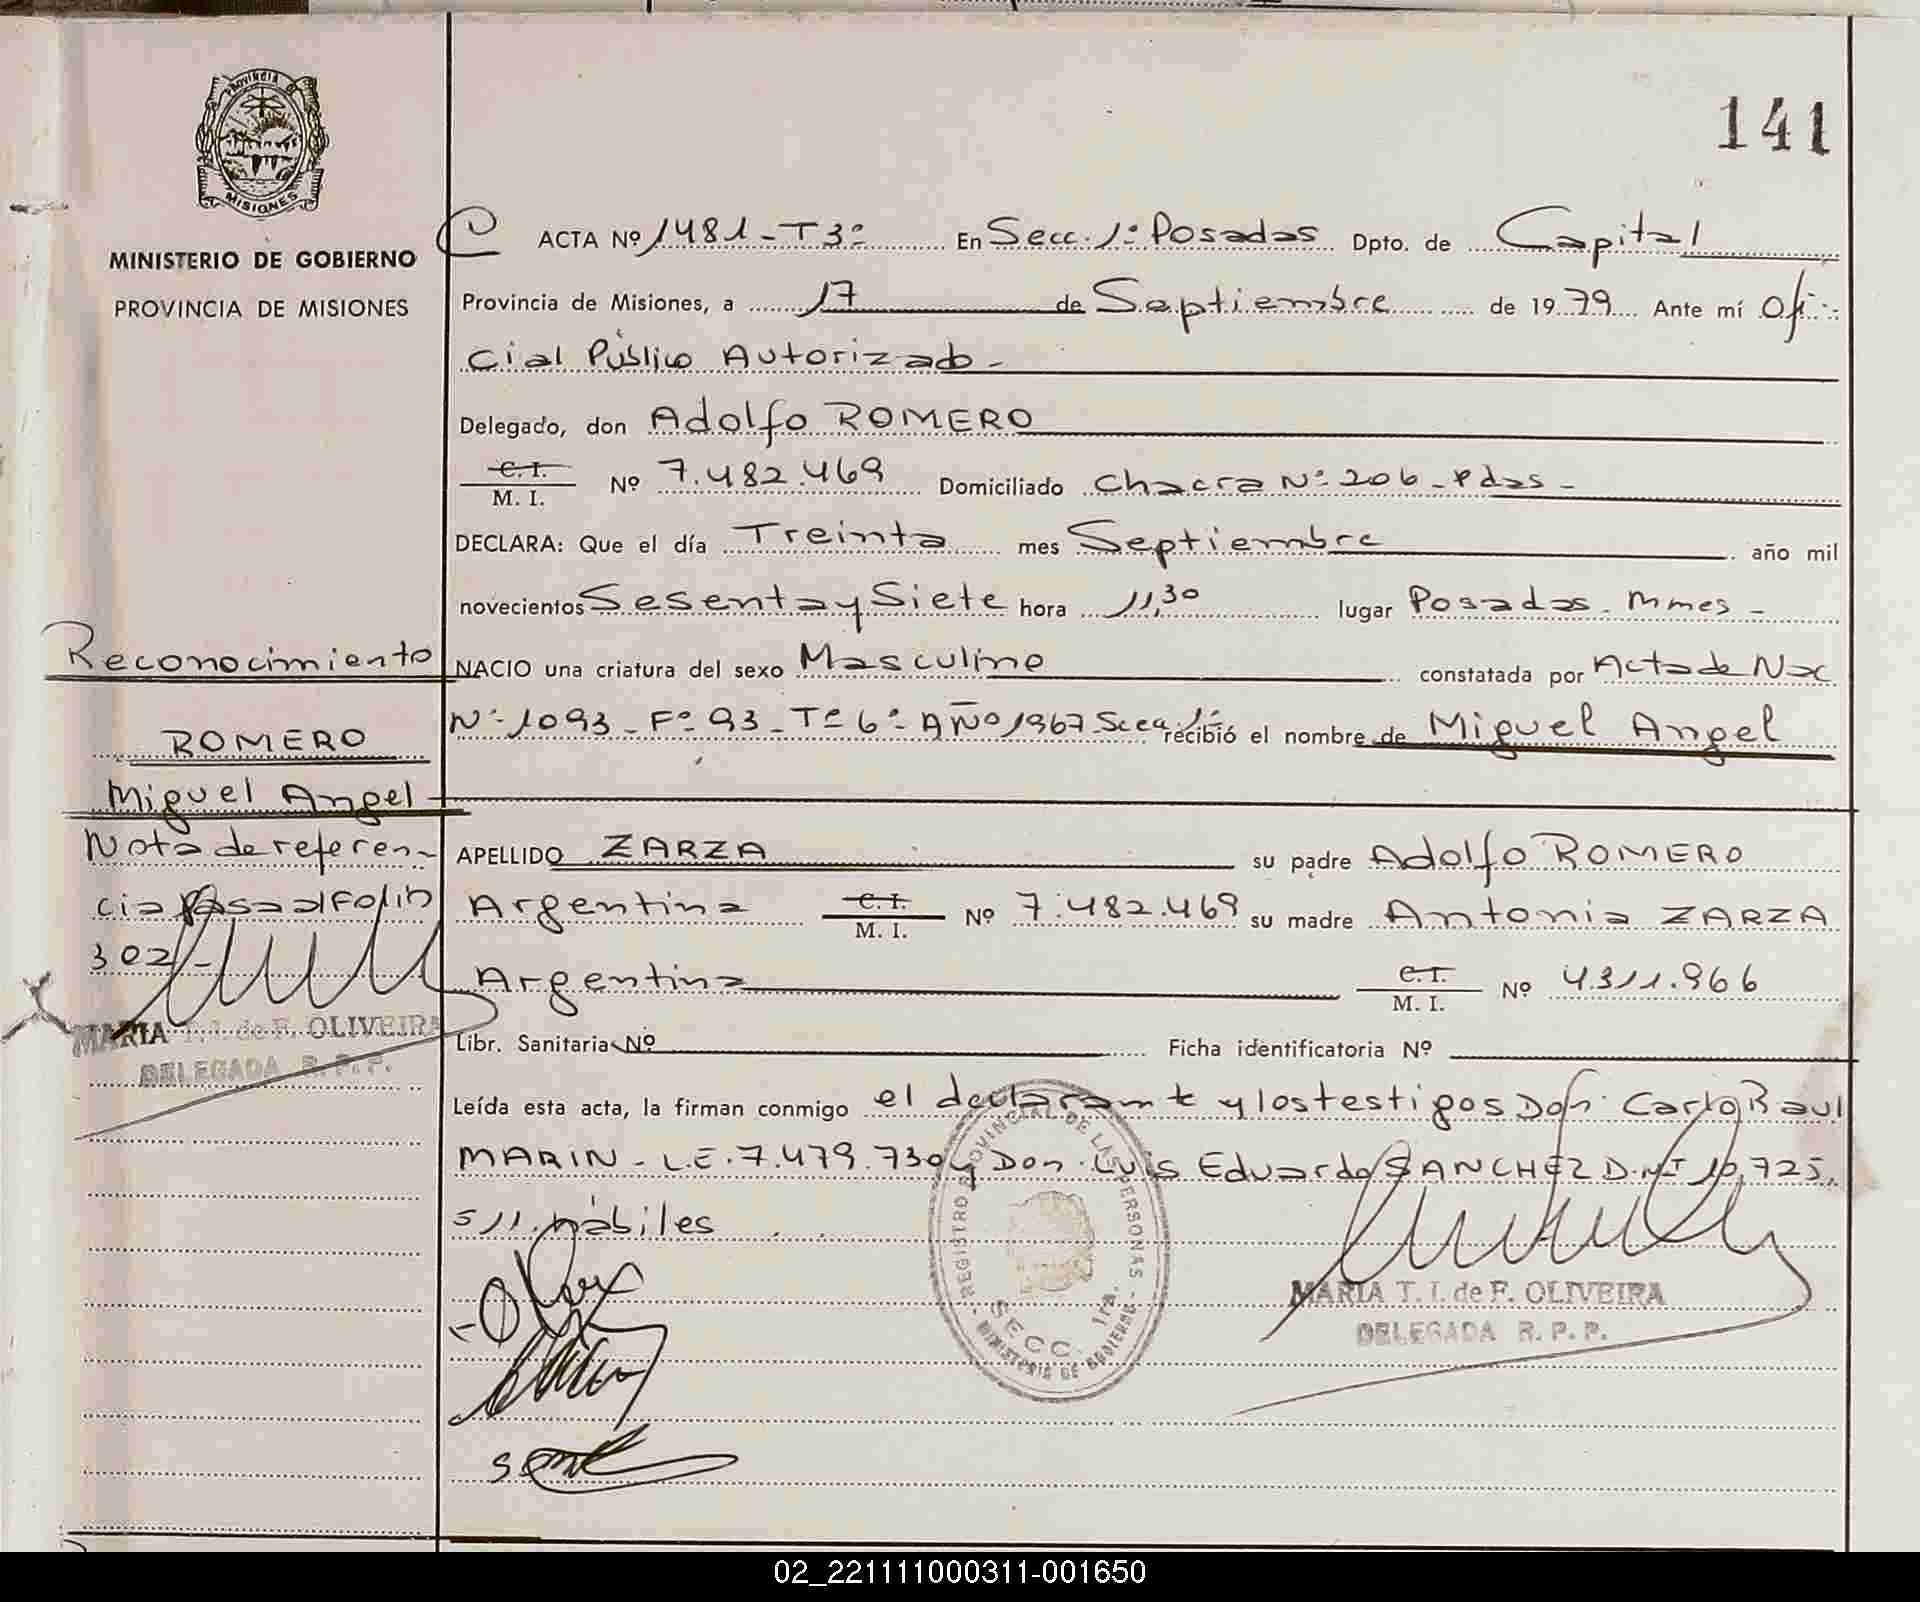 141
PROVINCIA DE
MISIONES
MINISTERIO DE GOBIERNO
PROVINCIA DE MISIONES
ACTA Nº 1481 - T 3º En Secc. 1º Posadas Dpto. de Capital
Provincia de Misiones, a 17 de Septiembre de 1979 Ante mí Ofi-
cial Público Autorizado -
Delegado, don Adolfo ROMERO
C.I. M. I. Nº 7.482.469 Domiciliado Chacra Nº 206 - Pdas -
DECLARA: Que el día Treinta mes Septiembre año mil
novecientos Sesenta y Siete hora 11,30 lugar Posadas - Mnes -
NACIO una criatura del sexo Masculino constatada por Acta de Nac
Nº 1093 - Fº 93 - Tº 6º - AÑO 1967 Secc 1º recibió el nombre de Miguel Angel
APELLIDO ZARZA su padre Adolfo ROMERO
Argentina C.I. M. I. Nº 7.482.469 su madre Antonia ZARZA
Argentina C.I. M. I. Nº 4.311.966
Libr. Sanitaria Nº Ficha identificatoria Nº
Leída esta acta, la firman conmigo el declarante y los testigos Don Carlo Raul
MARIN - L.E. 7.479.730 y Don Luis Eduardo SANCHEZ D.N.I 10.725.
511. hábiles
Reconocimiento
ROMERO
Miguel Angel
Nota de referen-
cia Pasa al Folio
302 -
MARIA T. I. de F. OLIVEIRA
DELEGADA R. P. P.
REGISTRO PROVINCIAL DE LAS PERSONAS
SECC. 1ra.
MINISTERIO DE GOBIERNO
MARIA T. I. de F. OLIVEIRA
DELEGADA R. P. P.
02_221111000311-001650